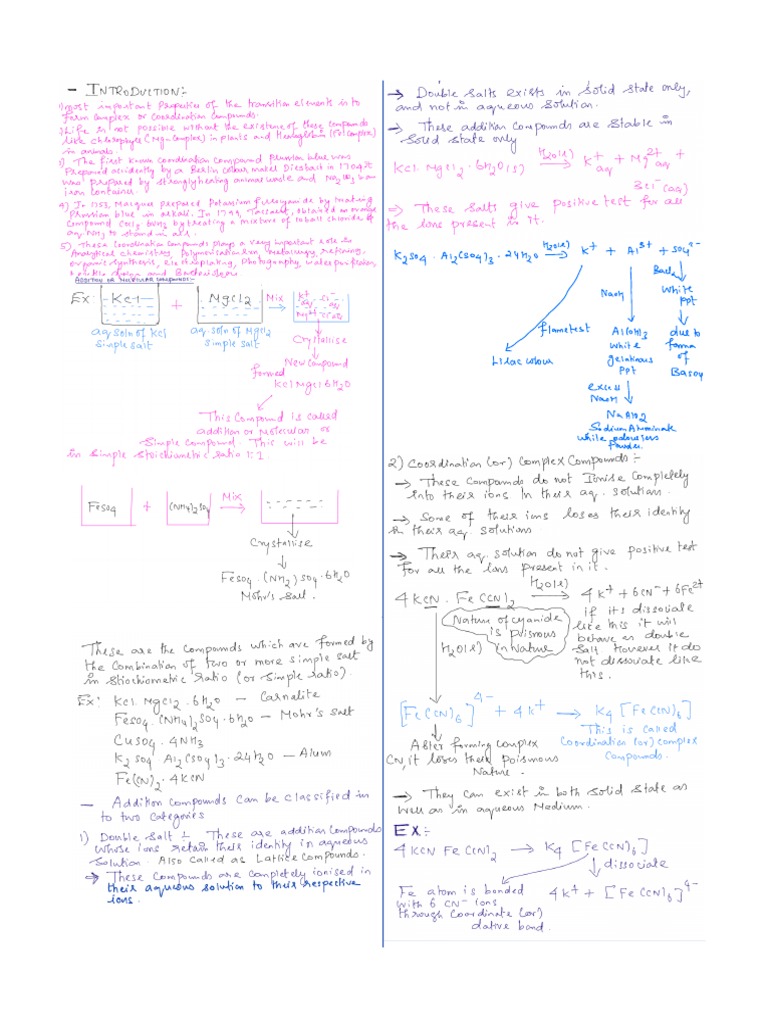 - INTRODUCTION:-
1) most important Properties of the transition elements is to
form complex or coordination compounds.
2) Life is not possible without the existence of these compounds
like chlorophyll (Mg-complex) in plants and Hemoglobin (Fe complex)
in animals
3) The first known coordination compound prussian blue was
Prepared accidently by a Berlin colour maker Diesbach in 1704. It
was prepared by strongly heating animal waste and Na2CO3 in an
iron container.
4) In 1753 Marquer prepared Potassium ferrocyanide by
Prussian blue in alkali. In 1799, Tassaert, obtained an orange
compound by treating a mixture of cobalt chloride &
aq NH3 to stand in air.
5) These coordination compounds plays a very important role in
Analytical chemistry, Polymerisation, metallurgy, refining,
organic synthesis, electroplating, Photography, water purification,
ADDITION OR MOLECULAR COMPOUNDS:-
Ex: KCl + MgCl2 Mix K+ aq Cl- aq
aq soln of KCl aq soln of MgCl2
simple salt simple salt
Crystallise
New Compound
formed
KCl MgCl2 6H2O
This Compound is called
addition or Molecular or
Simple compound. This will be
in simple stoichiometric ratio 1:1
FeSO4 + (NH4)2SO4 Mix
Crystallise
FeSO4.(NH2)SO4.6H2O
Mohr's salt.
These are the Compounds which are formed by
the Combination of two or more simple salt
in Stiochiometric Ratio (or Simple ratio).
Ex: KCl. MgCl2. 6H2O - Carnalite
FeSO4. (NH4)2SO4. 6H2O - Mohr's salt
CuSO4. 4NH3
K2SO4 Al2(SO4)3. 24H2O - Alum
Fe(CN)2. 4KCN
- Addition compounds can be classified in
to two categories
1) Double Salt :- These are addition Compounds
whose ions retain their identity in aqueous
solution. Also Called as Lattice Compounds.
→ These Compounds are completely ionised in
their aqueous solution to their respective
ions.
→ Double Salts exists in solid state only,
and not in aqueous solution.
→ These addition Compounds are stable in
Solid state only
KCl. MgCl2. 6H2O(s) H2O(l) → K+ aq + Mg2+ aq +
(aq)
⇒ These Salts give positive test for all
the ions present in it.
K2SO4. Al2(SO4)3. 24H2O H2O(l) → K+ + Al3+ + SO4 2-
flame test NaOH
Lilac colour
Al(OH)3
white
gelatinous
ppt
White
ppt
due to
forma
of
BaSO4
excess
NaOH
NaAlO2
Sodium Aluminate
white odourless
Powder.
2) Coordination (or) Complex Compounds:-
→ These Compounds do not Ionise Completely
into their ions in their aq. solutions.
→ Some of their ions loses their identity
in their aq. solutions
→ Their aq. solution do not give positive test
for all the ions present in it.
4KCN. Fe(CN)2 H2O(l) → 4K+ + 6CN- + 6Fe2+
Nature of cyanide
is poisnous
in Nature
H2O(l)
if its dissociate
like this it will
behave as double
Salt. However it do
not dissociate like
this.
[Fe(CN)6]4- + 4K+ → K4[Fe(CN)6]
This is called
Coordination (or) complex
Compounds.
After forming complex
CN, it loses their poisnous
Nature.
→ They can exist in both solid state as
well as in aqueous Medium.
EX:-
4KCN Fe(CN)2 → K4[Fe(CN)6]
dissociate
4K+ + [Fe(CN)6]4-
Fe atom is bonded
with 6 CN- ions
through Coordinate (or)
dative bond.